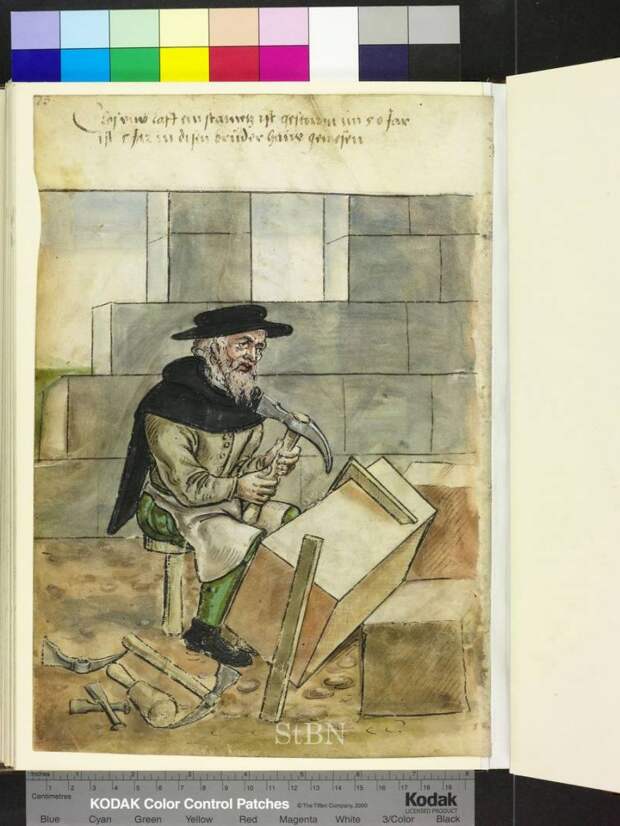 Kodak
ein stametz ist gestorm im 50 Jar
ist 5 Jar in disen bruder haus gewesen
StBN
Inches 1 2 3 4 5 6 7 8
Centimetres 1 2 3 4 5 6 7 8 9 10 11 12 13 14 15 16 17 18 19
KODAK Color Control Patches © The Tiffen Company, 2000 Kodak
LICENSED PRODUCT
Blue Cyan Green Yellow Red Magenta White 3/Color Black